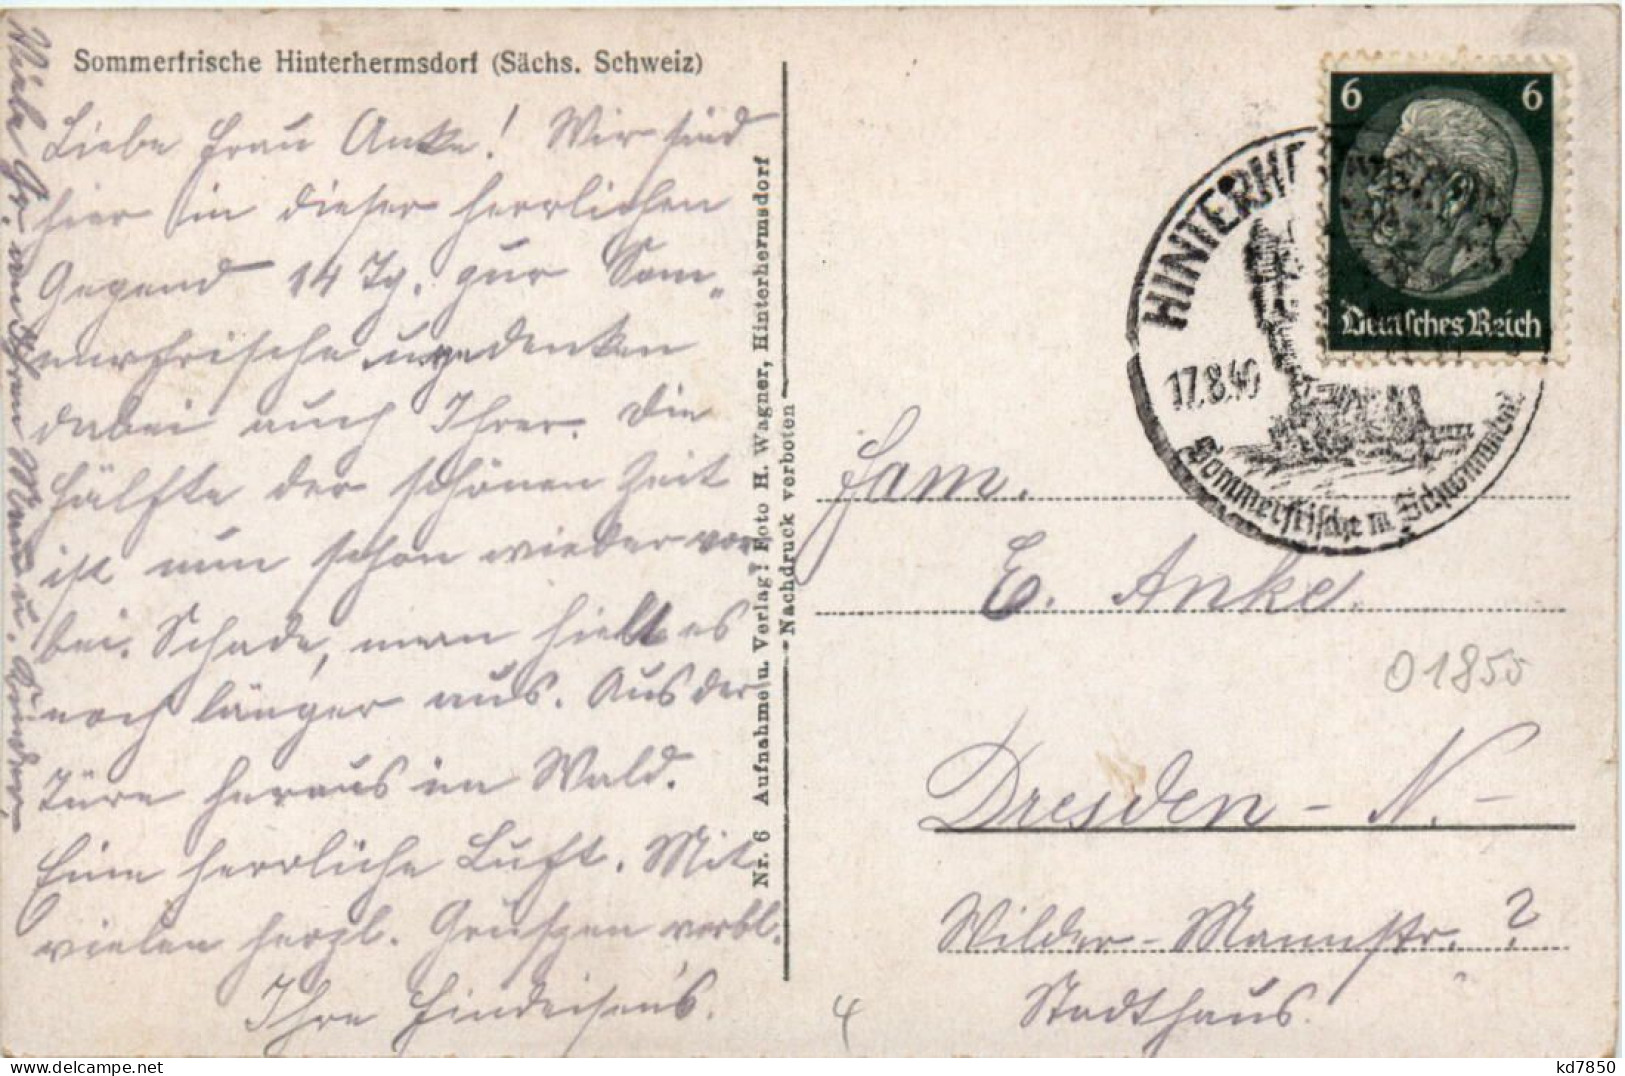 Sommerfrische Hinterhermsdorf (Sächs. Schweiz)
Liebe Frau Anke! Wir sind
hier in dieser herrlichen
Gegend 14 Tg. zur Som-
merfrische u. gedenken
dabei auch Ihrer. Die
Hälfte der schönen Zeit
ist nun schon wieder vor-
bei. Schade, man hielt es
noch länger aus. Aus der
Türe heraus im Wald.
Eine herrliche Luft. Mit
vielen herzl. Grüßen verbl.
Ihre Findeisens.
Viele Gr. an Ihren Mann u. Kinder.
Nr. 6 Aufnahme u. Verlag: Foto H. Wagner, Hinterhermsdorf
Nachdruck verboten
6 6
Deutsches Reich
HINTERHE
17.8.40
Sommerfrische m. Schwimmbad
Fam.
E. Anke.
01855
Dresden-N.-
Wilder-Mannstr. ?
Stadthaus.
4
kd7850